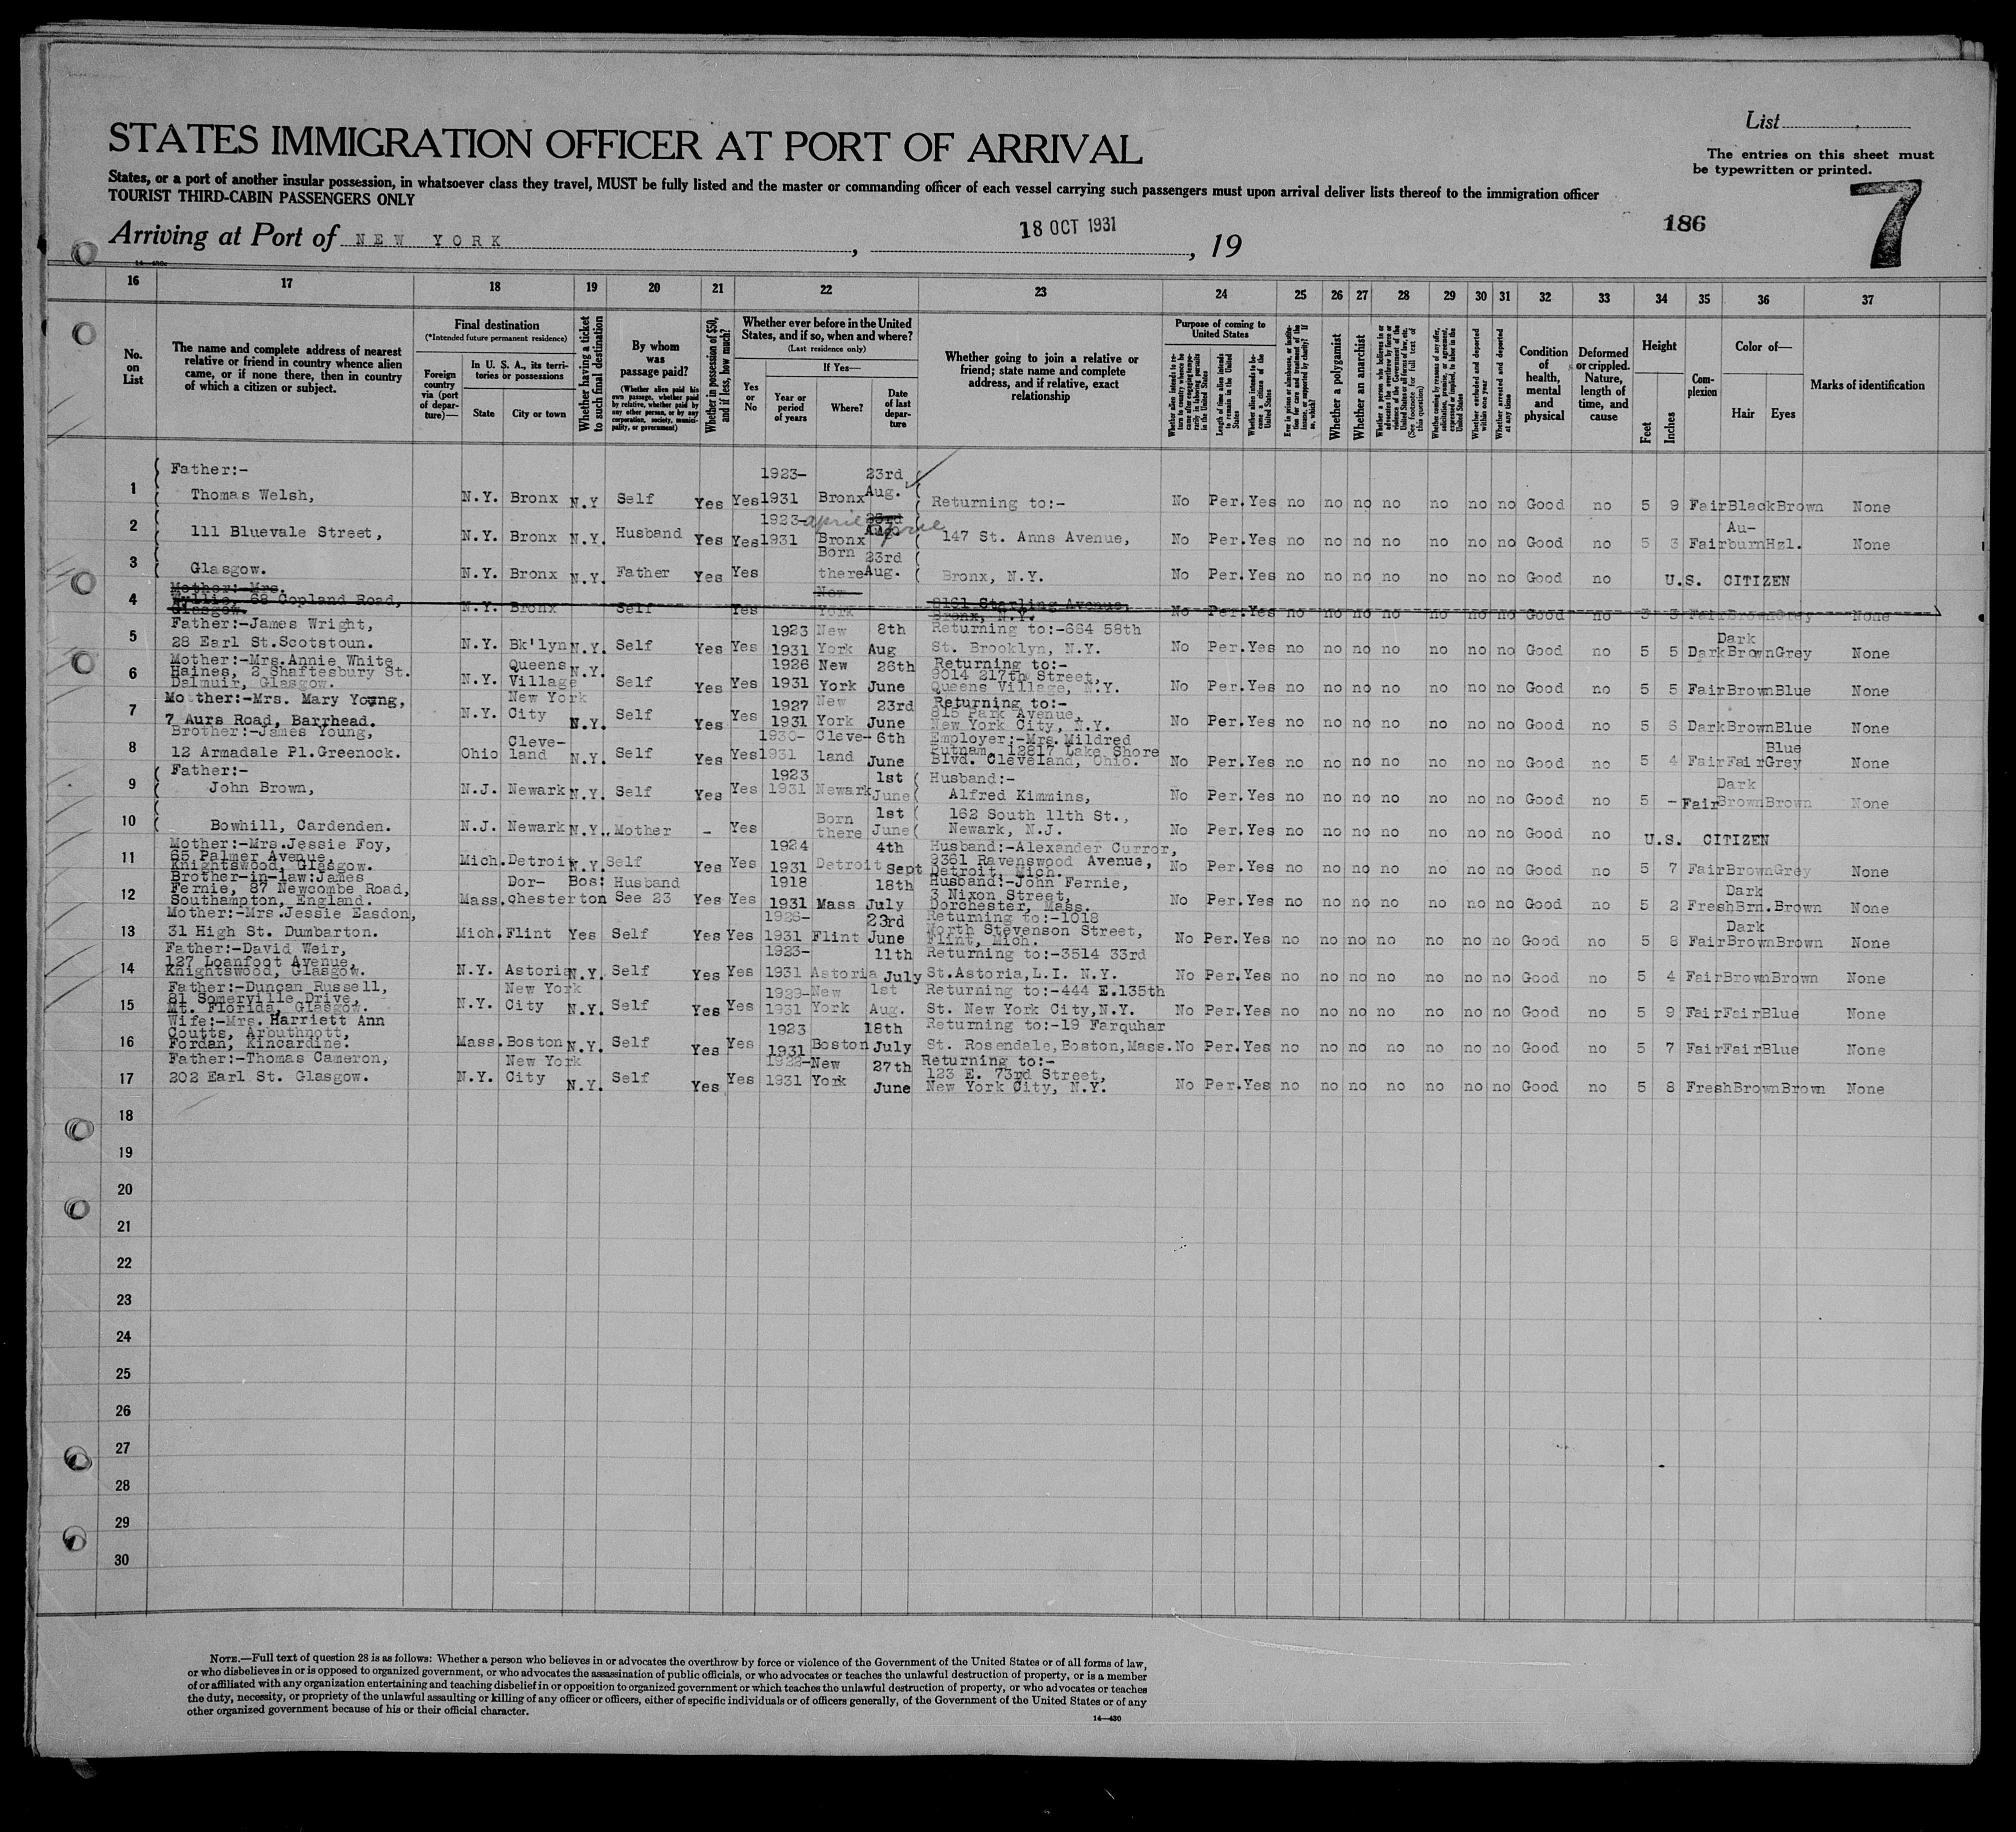 List
STATES IMMIGRATION OFFICER AT PORT OF ARRIVAL
The entries on this sheet must
be typewritten or printed.
States, or a port of another insular possession, in whatsoever class they travel, MUST be fully listed and the master or commanding officer of each vessel carrying such passengers must upon arrival deliver lists thereof to the immigration officer
TOURIST THIRD-CABIN PASSENGERS ONLY
186 7
Arriving at Port of NEW YORK, 18 OCT 1931, 19
16 17 18 19 20 21 22 23 24 25 26 27 28 29 30 31 32 33 34 35 36 37
No. on List
The name and complete address of nearest relative or friend in country whence alien came, or if none there, then in country of which a citizen or subject.
Final destination
(*Intended future permanent residence)
Foreign country via (port of departure)—
In U. S. A., its territories or possessions
State City or town
Whether having a ticket to such final destination
By whom was passage paid?
(Whether alien paid his own passage, whether paid by relative, whether paid by any other person, or by any corporation, society, municipality, or government)
Whether in possession of $50, and if less, how much?
Whether ever before in the United States, and if so, when and where?
(Last residence only)
Yes or No
If Yes—
Year or period of years
Where?
Date of last departure
Whether going to join a relative or friend; state name and complete address, and if relative, exact relationship
Purpose of coming to United States
Length of time alien intends to remain in the United States
Whether alien intends to become a citizen of the United States
Whether a polygamist
Whether an anarchist
Whether excluded and deported within one year
Whether arrested and deported at any time
Condition of health, mental and physical
Deformed or crippled. Nature, length of time, and cause
Height
Feet Inches
Complexion
Color of—
Hair Eyes
Marks of identification
1 Father:- Thomas Welsh, N.Y. Bronx N.Y Self Yes Yes 1923-1931 Bronx 23rd Aug. Returning to:- No Per. Yes no no no no no no no Good no 5 9 Fair Black Brown None
2 111 Bluevale Street, N.Y. Bronx N.Y. Husband Yes Yes 1923-1931 Bronx 23rd Aug. april 147 St. Anns Avenue, No Per. Yes no no no no no no no Good no 5 3 Fair Auburn Hzl. None
3 Glasgow. N.Y. Bronx N.Y. Father Yes Yes Born there 23rd Aug. Bronx, N.Y. No Per. Yes no no no no no no no Good no U.S. CITIZEN
4 Mother:-Mrs. Wyllie, 68 Copland Road, Glasgow. N.Y. Bronx Self Yes New York 2161 Starling Avenue, Bronx, N.Y. No Per. Yes no no no no no no no Good no Fair Brown Grey None
5 Father:-James Wright, 28 Earl St.Scotstoun. N.Y. Bk'lyn N.Y. Self Yes Yes 1923 1931 New York 8th Aug Returning to:-664 58th St. Brooklyn, N.Y. No Per. Yes no no no no no no no Good no 5 5 Dark Dark Brown Grey None
6 Mother:-Mrs.Annie White Haines, 2 Shaftesbury St. Dalmuir, Glasgow. N.Y. Queens Village N.Y. Self Yes Yes 1926 1931 New York 26th June Returning to:- 9014 217th Street, Queens Village, N.Y. No Per. Yes no no no no no no no Good no 5 5 Fair Brown Blue None
7 Mother:-Mrs. Mary Young, 7 Aurs Road, Barrhead. N.Y. New York City N.Y. Self Yes Yes 1927 1931 New York 23rd June Returning to:- 815 Park Avenue, New York City, N.Y. No Per. Yes no no no no no no no Good no 5 6 Dark Brown Blue None
8 Brother:-James Young, 12 Armadale Pl.Greenock. Ohio Cleveland N.Y. Self Yes Yes 1930-1931 Cleveland 6th June Employer:-Mrs.Mildred Putnam, 12817 Lake Shore Blvd. Cleveland, Ohio. No Per. Yes no no no no no no no Good no 5 4 Fair Fair Blue Grey None
9 Father:- John Brown, N.J. Newark N.Y. Self Yes Yes 1923 1931 Newark 1st June Husband:- Alfred Kimmins, No Per. Yes no no no no no no no Good no 5 - Fair Dark Brown Brown None
10 Bowhill, Cardenden. N.J. Newark N.Y.. Mother - Yes Born there 1st June 162 South 11th St., Newark, N.J. No Per. Yes no no no no no no no Good no U.S. CITIZEN
11 Mother:-Mrs.Jessie Foy, 65 Palmer Avenue, Knightswood, Glasgow. Mich. Detroit N.Y. Self Yes Yes 1924 1931 Detroit 4th Sept Husband:-Alexander Curror, 9361 Ravenswood Avenue, Detroit, Mich. No Per. Yes no no no no no no no Good no 5 7 Fair Brown Grey None
12 Brother-in-law:James Fernie, 87 Newcombe Road, Southampton, England. Mass. Dorchester Boston Husband See 23 Yes Yes 1918 1931 Mass 18th July Husband:-John Fernie, 3 Nixon Street, Dorchester, Mass. No Per. Yes no no no no no no no Good no 5 2 Fresh Dark Brn. Brown None
13 Mother:-Mrs.Jessie Easdon, 31 High St. Dumbarton. Mich. Flint Yes Self Yes Yes 1926-1931 Flint 23rd June Returning to:-1018 North Stevenson Street, Flint, Mich. No Per. Yes no no no no no no no Good no 5 8 Fair Dark Brown Brown None
14 Father:-David Weir, 127 Loanfoot Avenue, Knightswood, Glasgow. N.Y. Astoria N.Y. Self Yes Yes 1923-1931 Astoria 11th July Returning to:-3514 33rd St.Astoria,L.I. N.Y. No Per. Yes no no no no no no no Good no 5 4 Fair Brown Brown None
15 Father:-Duncan Russell, 81 Somerville Drive, Mt. Florida, Glasgow. N.Y. New York City N.Y. Self Yes Yes 1929-1931 New York 1st Aug. Returning to:-444 E.135th St. New York City,N.Y. No Per. Yes no no no no no no no Good no 5 9 Fair Fair Blue None
16 Wife:-Mrs. Harriett Ann Coutts, Arbuthnott, Fordan, Kincardine. Mass. Boston N.Y. Self Yes Yes 1923 1931 Boston 18th July Returning to:-19 Farquhar St. Rosendale,Boston,Mass. No Per. Yes no no no no no no no Good no 5 7 Fair Fair Blue None
17 Father:-Thomas Cameron, 202 Earl St. Glasgow. N.Y. New York City N.Y. Self Yes Yes 1931 New York 27th June Returning to:- 123 E. 73rd Street, New York City, N.Y. No Per. Yes no no no no no no no Good no 5 8 Fresh Brown Brown None
18
19
20
21
22
23
24
25
26
27
28
29
30
NOTE.—Full text of question 28 is as follows: Whether a person who believes in or advocates the overthrow by force or violence of the Government of the United States or of all forms of law,
or who disbelieves in or is opposed to organized government, or who advocates the assassination of public officials, or who advocates or teaches the unlawful destruction of property, or is a member
of or affiliated with any organization entertaining and teaching disbelief in or opposition to organized government or which teaches the unlawful destruction of property, or who advocates or teaches
the duty, necessity, or propriety of the unlawful assaulting or killing of any officer or officers, either of specific individuals or of officers generally, of the Government of the United States or of any
other organized government because of his or their official character.
14—430